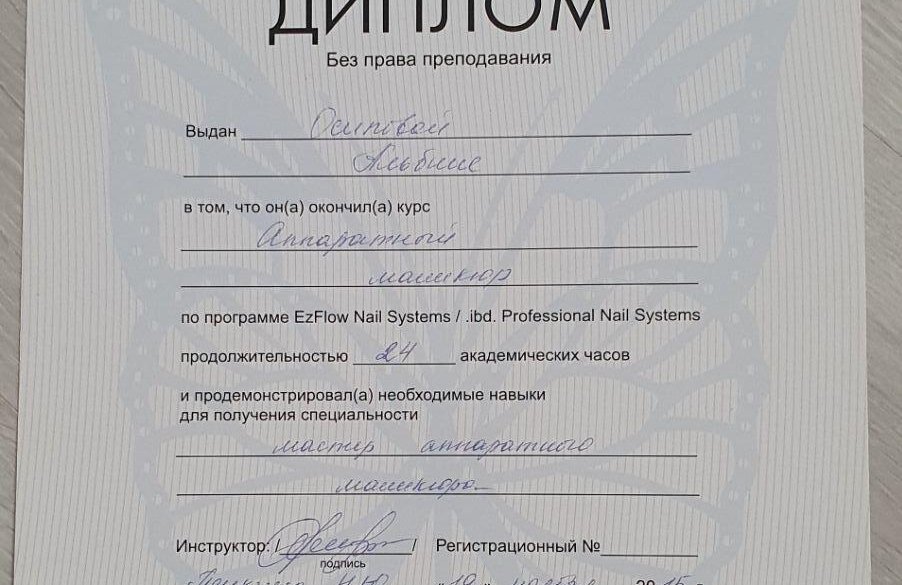 ДИПЛОМ
Без права преподавания
Выдан Осиповой
Альбине
в том, что он(а) окончил(а) курс
Аппаратный
маникюр
по программе EzFlow Nail Systems / .ibd. Professional Nail Systems
продолжительностью 24 академических часов
и продемонстрировал(а) необходимые навыки
для получения специальности
мастер аппаратного
маникюра
Инструктор: / / Регистрационный №
подпись
"19" 2015 г.